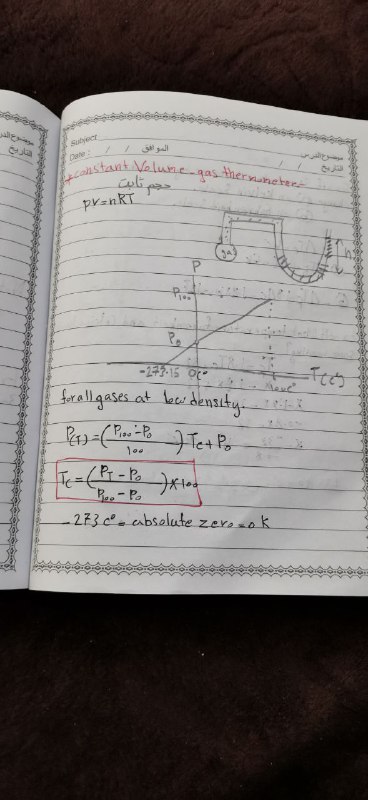 Subject
موضوع الدرس
Date: / / الموافق
التاريخ / /
*constant Volume-gas thermometer-
حجم ثابت
PV=nRT
gas
h
P
P100
P0
-273.15 0C° T(C°)
for all gases at low density.
P(T)=(P100-P0/100)Tc+P0
Tc=(PT-P0/P100-P0)×100
-273c°=absolute zero=0k